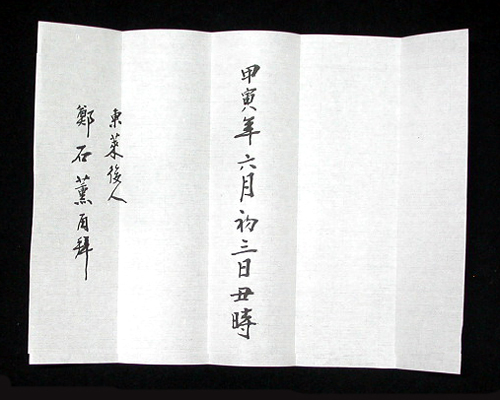 甲寅年六月初三日丑時
東萊後人
鄭石薰再拜